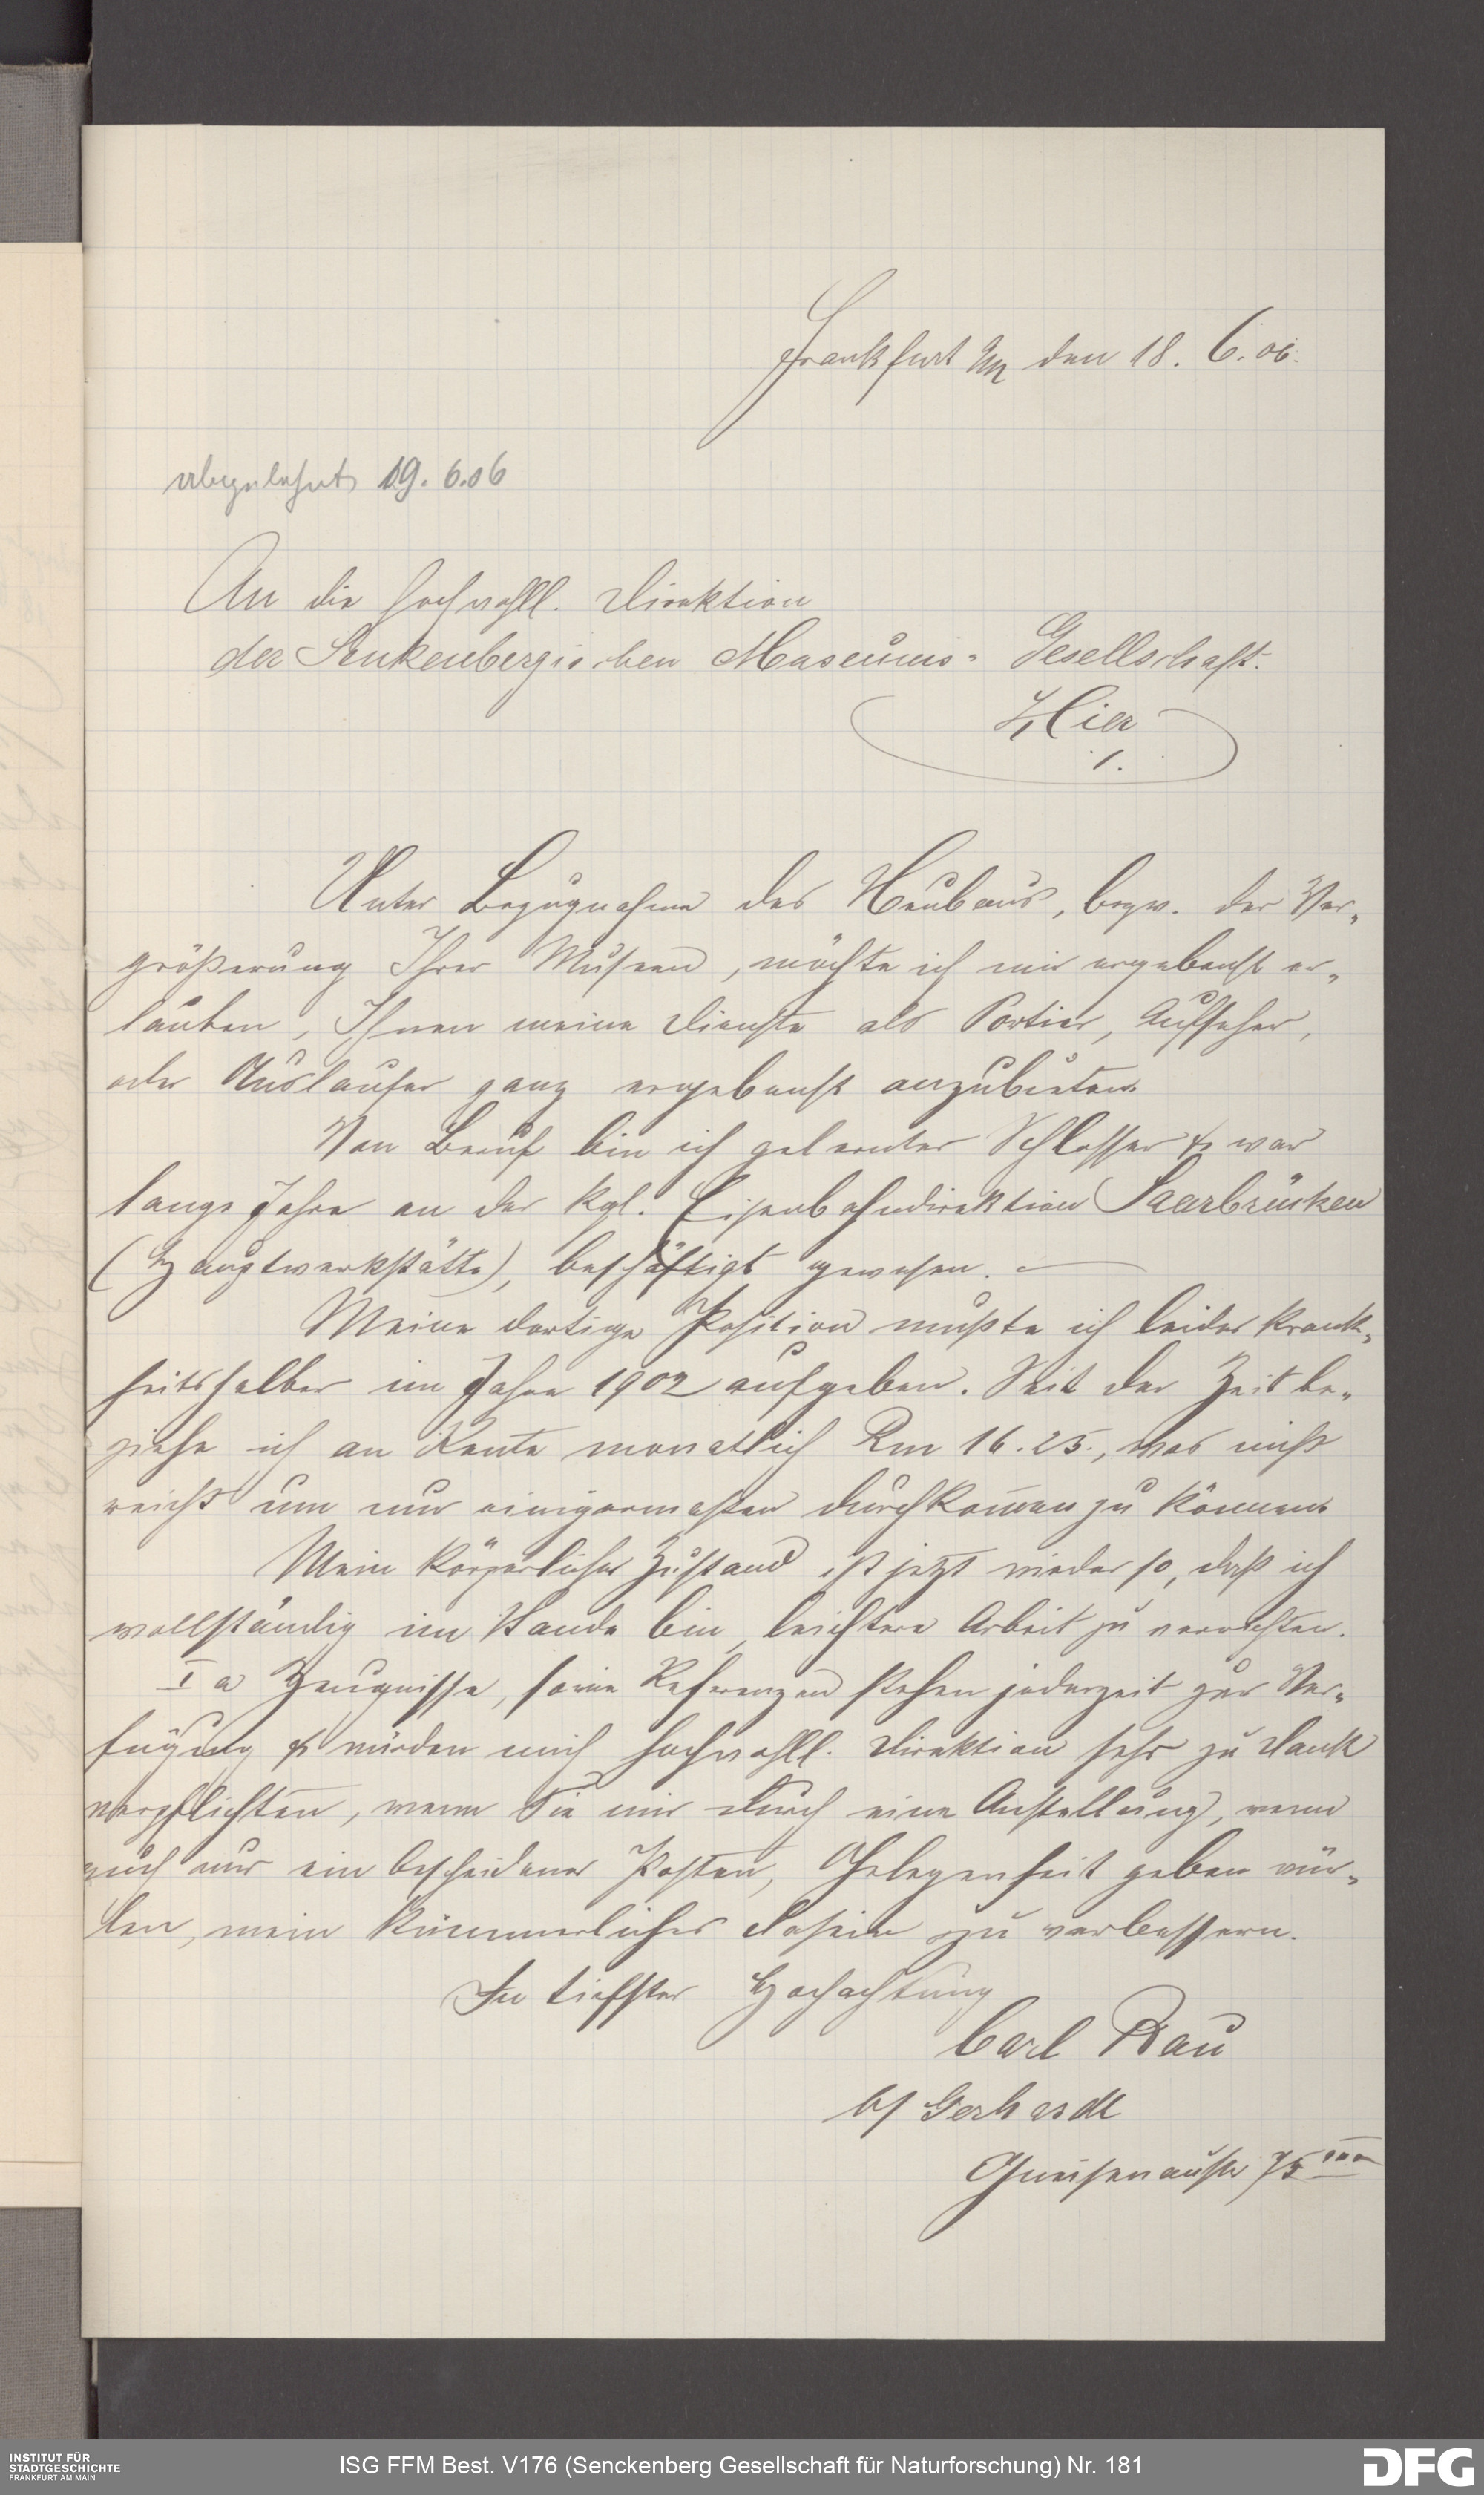 Frankfurt a/M den 18. 6. 06.
abgelehnt 19. 6. 06
An die hochwohll. Direktion
der Senkenbergischen Museums- Gesellschaft.
Hier
1.
Unter Bezugnahme des Neubaus, bezw. der Ver-
größerung Ihrer Museen, möchte ich mir ergebenst er-
lauben, Ihnen meine Dienste als Portier, Aufseher,
oder Auslaufer ganz ergebenst anzubieten.
Von Beruf bin ich gelernter Schlosser & war
lange Jahre an der Kgl. Eisenbahndirektion Saarbrücken
(Hauptwerkstätte), beschäftigt gewesen.
Meine dortige Position mußte ich leider krank-
heitshalber im Jahre 1902 aufgeben. Seit der Zeit be-
ziehe ich an Rente monatlich Rm 16.25., was nicht
reicht um nur einigermaßen durchkom̅en zu können.
Mein körperlicher Zustand ist jetzt wieder so, daß ich
vollständig im Stande bin, leichtere Arbeit zu verrichten.
Ia Zeugnisse, sowie Referenzen stehen jederzeit zur Ver-
fügung & würden mich hochwohll. Direktion sehr zu Dank
verpflichten, wenn Sie mir durch eine Anstellung, wenn
auch nur ein bescheidener Posten, Gelegenheit geben wür-
den, mein kümmerliches Dasein zu verbessern.
In tiefster Hochachtung
Carl Rau
b/ Gerhardt
Gneisenaustr 75 III
INSTITUT FÜR
STADTGESCHICHTE
FRANKFURT AM MAIN
ISG FFM Best. V176 (Senckenberg Gesellschaft für Naturforschung) Nr. 181
DFG